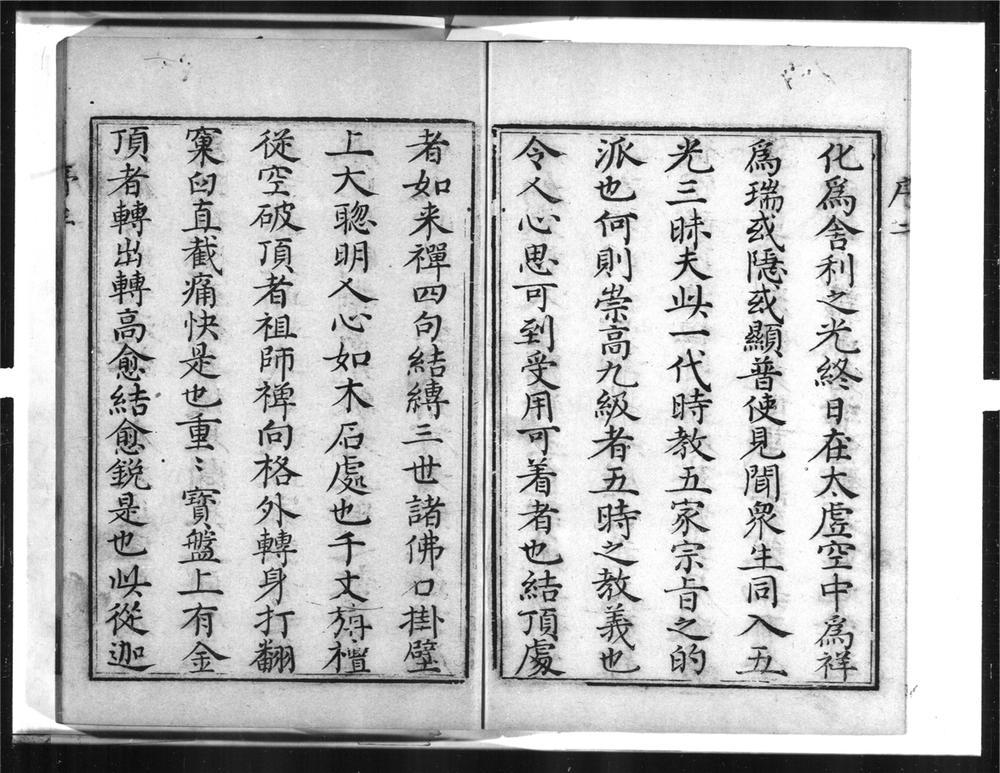 序二
化爲舍利之光終日在太虛空中爲祥
爲瑞或隱或顯普使見聞衆生同入五
光三昧夫此一代時教五家宗旨之的
派也何則崇高九級者五時之教義也
令人心思可到受用可着者也結頂處
者如来禪四句結縛三世諸佛口掛壁
上大聰明人心如木石處也千丈旃檀
從空破頂者祖師禅向格外轉身打翻
窠臼直截痛快是也重〻寳盤上有金
頂者轉出轉高愈結愈銳是也此從迦
序三